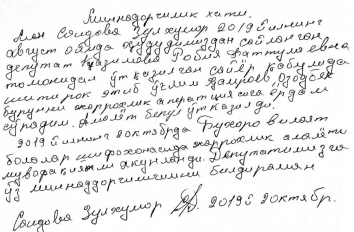 Миннадорчилик хати.
Мен Саидова Зулхумор 2019 йилнинг
август ойида худудимиздан сайланган
депутат Фазилова Робия Фаттуллаевна
томонидан ўтказилган сайёр қабулида
иштирок этиб ўғлим Озодбек
бурунни жаррохлик операциясига ёрдам
сўрадим. Амалёт бепул ўтказилди.
2019 йилнинг 2 октябрда Бухоро вилоят
болалар шифохонасида жаррохлик амалёти
муворфакиятли якунланди. Депутатимизга
ўз миннаддорчилигимни билдираман
Саидова Зулхумор 2019 й 2 октябр.